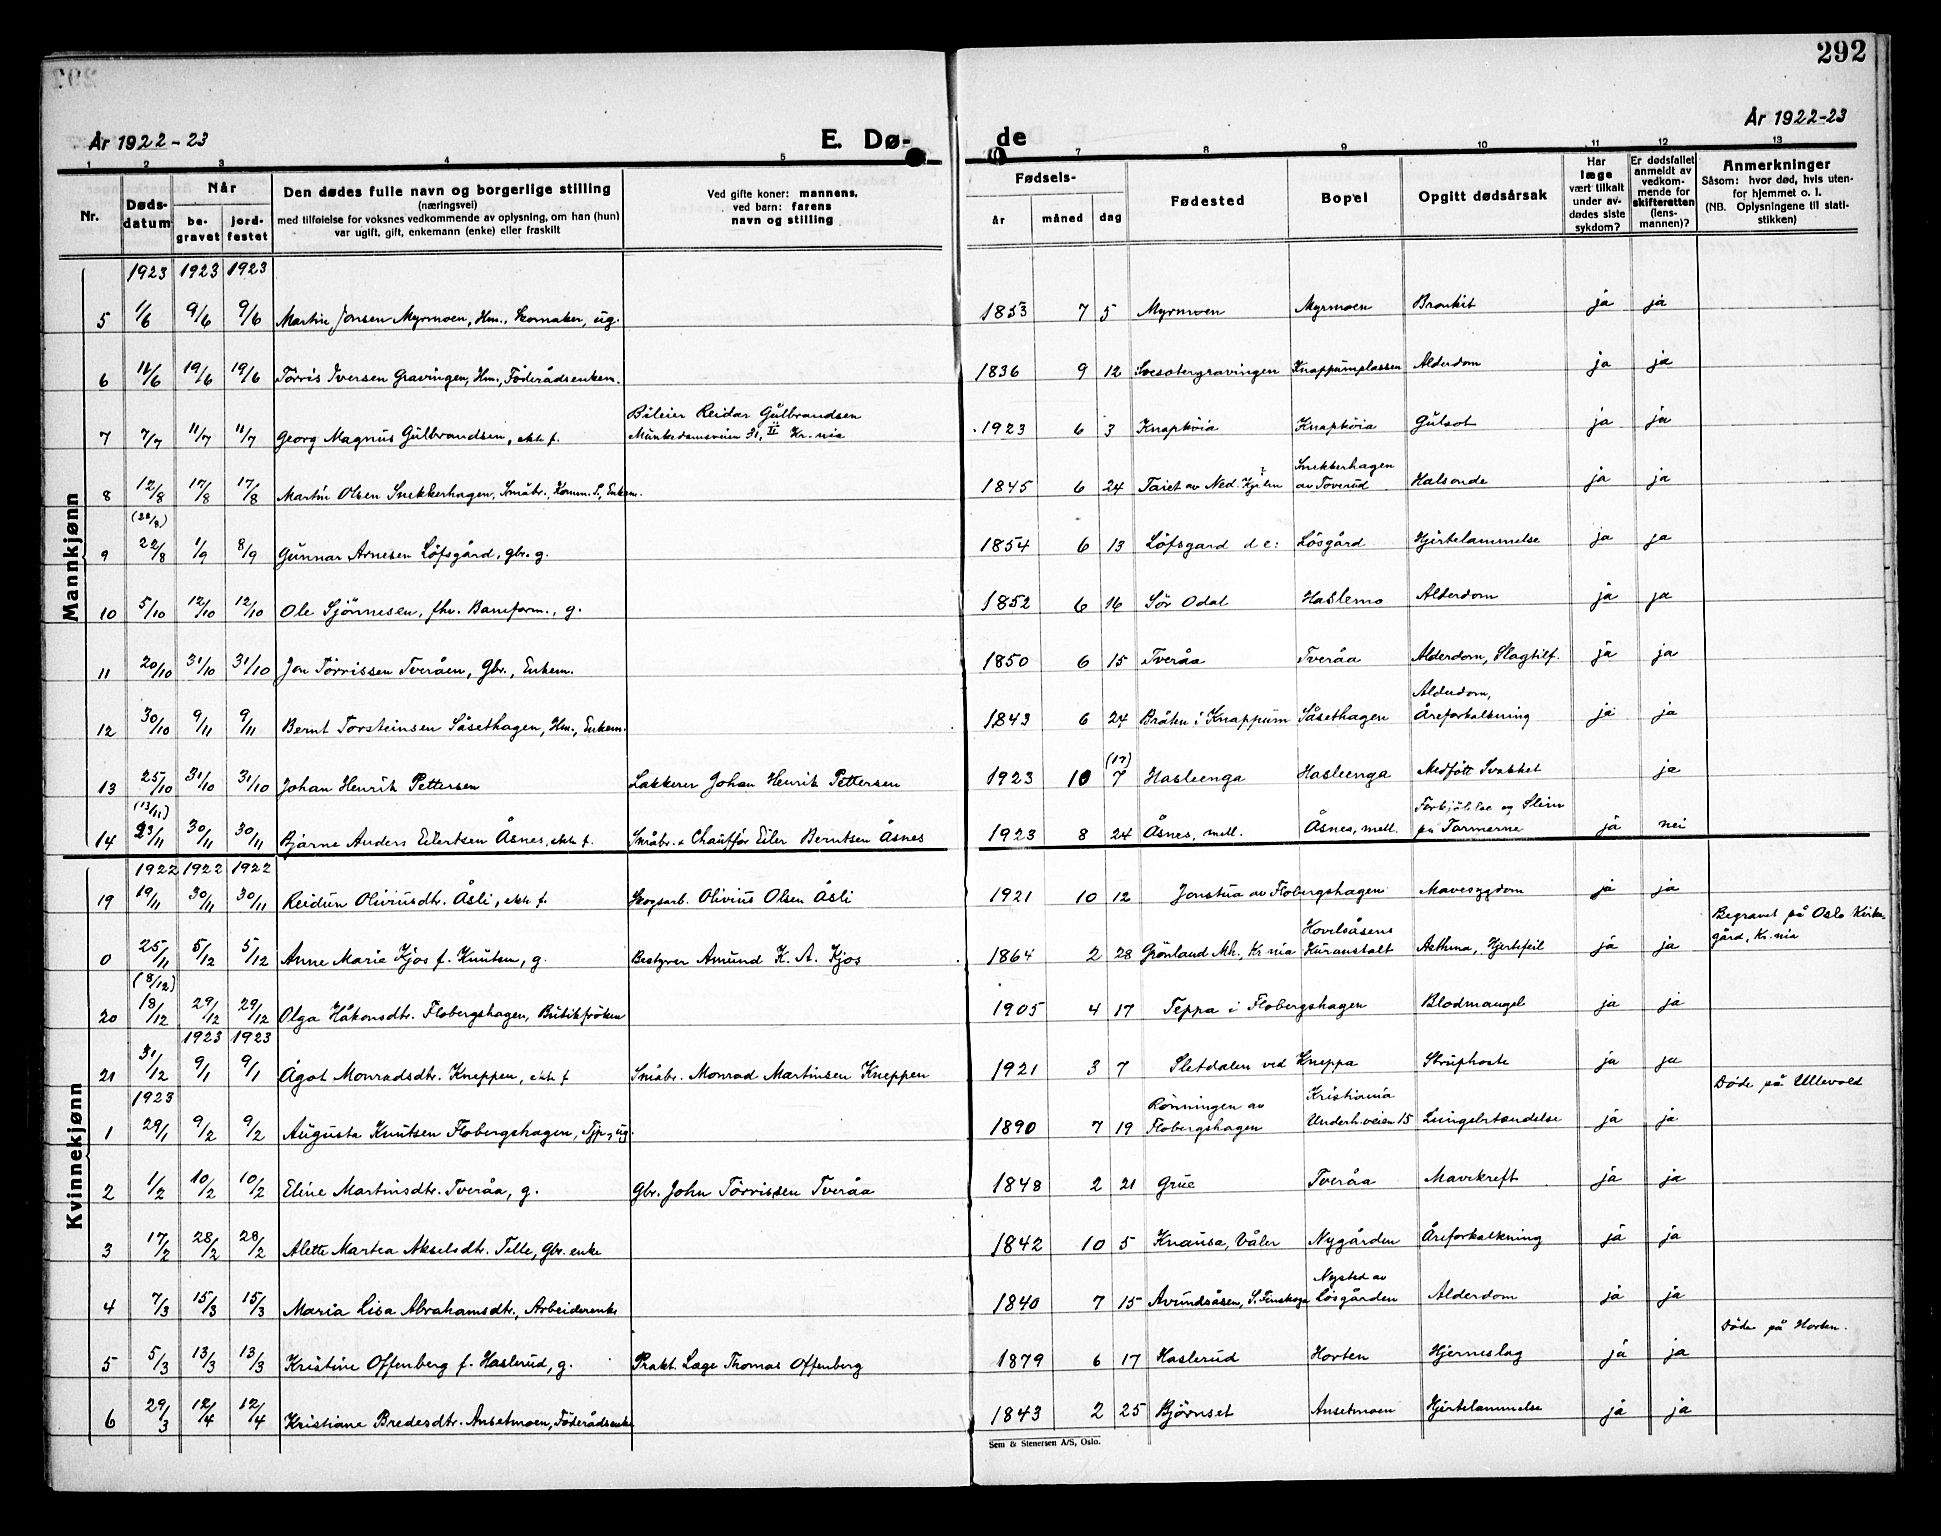 292
År 1922-23
E. Dø-
de
År 1922-23
1 2 3 4 5 7 8 9 10 11 12 13
Nr.
Dødsdatum
Når
begravet
jordfestet
Den dødes fulle navn og borgerlige stilling
(næringsvei)
med tilføielse for voksnes vedkommende av oplysning, om han (hun)
var ugift, gift, enkemann (enke) eller fraskilt
Ved gifte koner: mannens,
ved barn: farens
navn og stilling
Fødsels-
år måned dag
Fødested
Bopel
Opgitt dødsårsak
Har
læge
vært tilkalt
under avdødes
siste
sykdom?
Er dødsfallet
anmeldt av
vedkommende
for
skifteretten
(lensmannen)?
Anmerkninger
Såsom: hvor død, hvis utenfor
hjemmet o. l.
(NB. Oplysningene til statistikken)
Mannkjønn
1923 1923 1923
5 1/6 9/6 9/6 Martin Jonsen Myrmoen, Hm., Skomaker, ug. 1853 7 5 Myrmoen Myrmoen Bronkit ja ja
6 11/6 19/6 19/6 Törris Iversen Gravingen, Hm., Föderådsenkem. 1836 9 12 Soesætergravingen Knappumplassen Alderdom ja ja
7 7/7 11/7 11/7 Georg Magnus Gulbrandsen, ekte f. Bileier Reidar Gulbrandsen Munkedamsveien 31, II Kr.nia 1923 6 3 Knapköia Knapköia Gulsot ja ja
8 12/8 17/8 17/8 Martin Olsen Snekkerhagen, Småbr., Enkem. 1845 6 24 Taiet av Ned. Snekkerhagen av Toverud Halsonde ja ja
9 (22/8) 22/8 1/9 8/9 Gunnar Arnesen Löfsgård, gbr. g. 1854 6 13 Löfsgard d e: Lösgård Hjertelammelse ja ja
10 5/10 12/10 12/10 Ole Sjönnesen, fhv. Baneform., g. 1852 6 16 Sör Odal Haslemo Alderdom ja ja
11 20/10 31/10 31/10 Jon Törrissen Tveråen, Gbr., Enkem. 1850 6 15 Tveråa Tveråa Alderdom, Slagtilf. ja ja
12 30/10 9/11 9/11 Bernt Torsteinsen Såsethagen, Hm., Enkem. 1843 6 24 Bråten i Knappum Såsethagen Alderdom, Åreforkalkning ja ja
13 25/10 31/10 31/10 Johan Henrik Pettersen Lakkerer Johan Henrik Pettersen 1923 10 (17) 7 Hasleenga Hasleenga Medfött Svakhet ja
14 (13/11) 23/11 30/11 30/11 Bjarne Anders Eilertsen Åsnes, ekte f. Småbr. & Chauffør Eiler Berntsen Åsnes 1923 8 24 Åsnes, mell. Åsnes, mell. Forkjölelse og Slim på Tarmerne ja nei
Kvinnekjønn
1922 1922 1922
19 19/11 30/11 30/11 Reidun Oliviusdtr. Åsli, ekte f. Skogsarb. Olivius Olsen Åsli 1921 10 12 Jonstua av Flobergshagen Mavesygdom ja ja
0 25/11 5/12 5/12 Anne Marie Kjos f. Knutsen, g. Bestyrer Amund K. A. Kjos 1864 2 28 Grönland Mh., Kr.nia Hovelsåsens Kuranstalt Asthma, Hjertefeil ja ja Begravet på Oslo Kirkegård, Kr.nia
20 (8/12) 18/12 29/12 29/12 Olga Håkonsdtr. Flobergshagen, Butikfröken 1905 4 17 Teppa i Flobergshagen Blodmangel ja ja
1923 1923
21 31/12 9/1 9/1 Ågot Monradsdtr. Kneppen, ekte f Småbr. Monrad Martinsen Kneppen 1921 3 7 Sletdalen ved Kneppa Struphoste ja ja
1923
1 29/1 9/2 9/2 Augusta Knutsen Flobergshagen, Tjp., ug. 1890 7 19 Rönningen av Flobergshagen Kristiania Underh.veien 15 Lungebetændelse ja ja Döde på Ullevold
2 1/2 10/2 10/2 Eline Martinsdtr. Tveråa, g. Gbr. John Törrissen Tveråa 1848 2 21 Grue Tveråa Mavekreft ja ja
3 17/2 28/2 28/2 Alette Martea Akselsdtr. Telle, Gbr. enke 1842 10 5 Knausa, Våler Nygården Åreforkalkning ja ja
4 7/3 15/3 15/3 Maria Lisa Abrahamsdtr., Arbeiderenke 1840 7 15 Avundsåsen, S. Finskoga Nysted av Lösgården Alderdom ja ja
5 5/3 13/3 13/3 Kristine Offenberg f. Haslerud, g. Prakt. Læge Thomas Offenberg 1879 6 17 Haslerud Horten Hjerneslag ja ja Döde på Horten.
6 29/3 12/4 12/4 Kristiane Bredesdtr. Ansetmoen, Föderådsenke 1843 2 25 Björnset Ansetmoen Hjertelammelse ja ja
Sem & Stenersen A/S, Oslo.